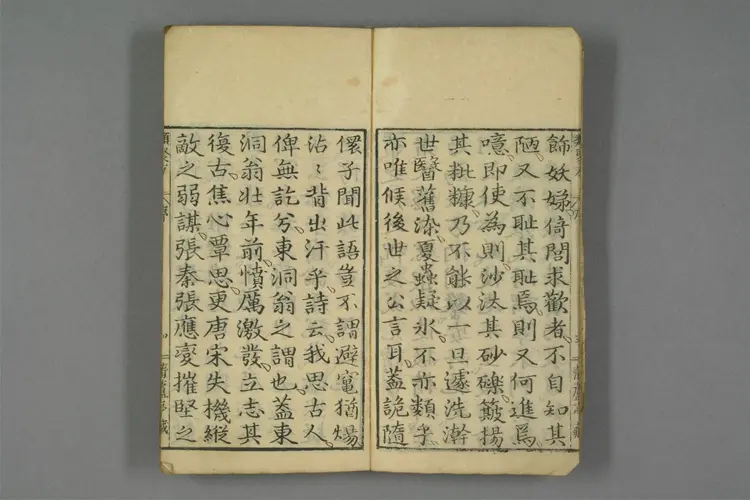 飾妖婦倚閭求歡者不自知其
陋又不耻其耻焉則又何進焉
噫即使為則沙汰其砂礫簸揚
其粃糠乃不能以一旦遽洗澣
世醫舊染夏蟲疑氷不亦類乎
亦唯候後世之公言耳蓋詭隨
儇子聞此語豈不謂避竈猶煬
沾〻背出汗乎詩云我思古人
俾無訖兮東洞翁之謂也蓋東
洞翁壮年前憤厲激發立志其
復古焦心覃思更唐宋失機縱
敵之弱謀張秦張應變摧堅之